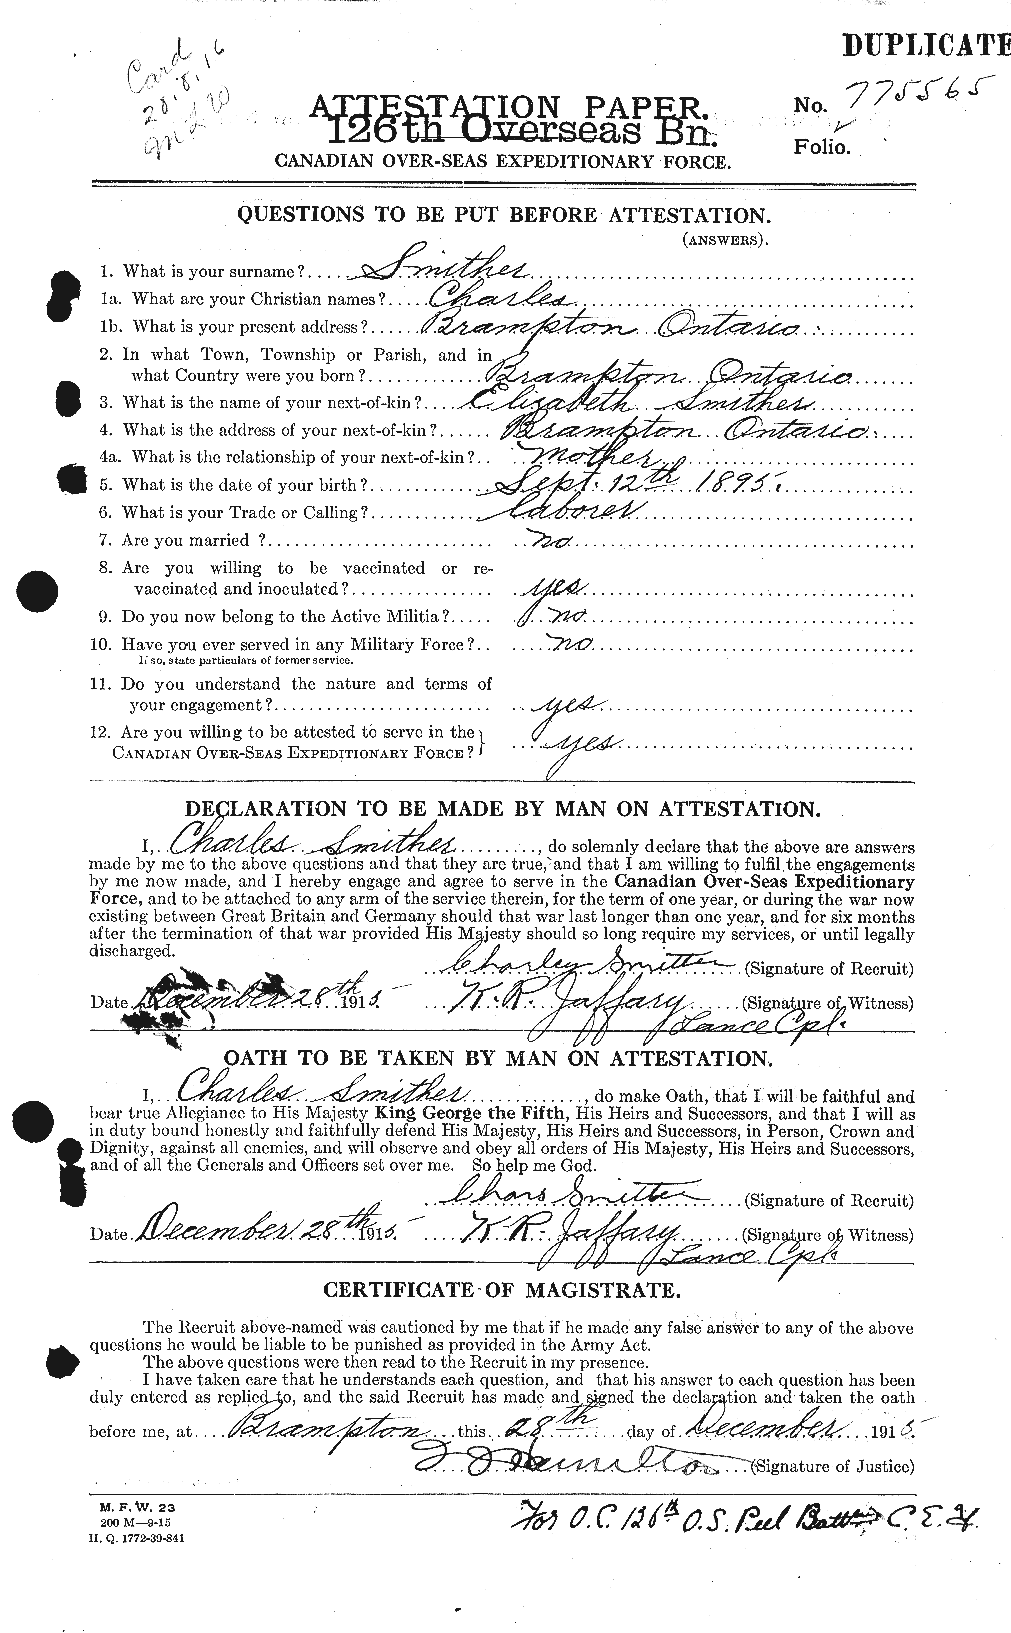 DUPLICATE
Card
28.8.16
No. 775565
ATTESTATION PAPER.
126th Overseas Bn.
Folio.
CANADIAN OVER-SEAS EXPEDITIONARY FORCE.
QUESTIONS TO BE PUT BEFORE ATTESTATION.
(ANSWERS).
1. What is your surname?.... Smither
1a. What are your Christian names?.... Charles
1b. What is your present address?...... Brampton Ontario.
2. In what Town, Township or Parish, and in
what Country were you born?............ Brampton Ontario
3. What is the name of your next-of-kin?.... Elizabeth Smither
4. What is the address of your next-of-kin?...... Brampton Ontario.
4a. What is the relationship of your next-of-kin?.. Mother
5. What is the date of your birth?............ Sept. 12th 1895.
6. What is your Trade or Calling?............ Laborer
7. Are you married ?........................ no
8. Are you willing to be vaccinated or re-
vaccinated and inoculated?................ yes
9. Do you now belong to the Active Militia?..... no
10. Have you ever served in any Military Force?.. no
If so, state particulars of former service.
11. Do you understand the nature and terms of
your engagement?........................ yes
12. Are you willing to be attested to serve in the
CANADIAN OVER-SEAS EXPEDITIONARY FORCE? } yes
DECLARATION TO BE MADE BY MAN ON ATTESTATION.
I, Charles Smither........., do solemnly declare that the above are answers
made by me to the above questions and that they are true, and that I am willing to fulfil the engagements
by me now made, and I hereby engage and agree to serve in the Canadian Over-Seas Expeditionary
Force, and to be attached to any arm of the service therein, for the term of one year, or during the war now
existing between Great Britain and Germany should that war last longer than one year, and for six months
after the termination of that war provided His Majesty should so long require my services, or until legally
discharged.
Charley Smitter (Signature of Recruit)
Date December 28th 1915 K. R. Jaffary (Signature of Witness)
Lance Cpl.
OATH TO BE TAKEN BY MAN ON ATTESTATION.
I, Charles Smither............, do make Oath, that I will be faithful and
bear true Allegiance to His Majesty King George the Fifth, His Heirs and Successors, and that I will as
in duty bound honestly and faithfully defend His Majesty, His Heirs and Successors, in Person, Crown and
Dignity, against all enemies, and will observe and obey all orders of His Majesty, His Heirs and Successors,
and of all the Generals and Officers set over me. So help me God.
Chars Smitter (Signature of Recruit)
Date December 28th 1915. K. R. Jaffary (Signature of Witness)
Lance Cpl.
CERTIFICATE OF MAGISTRATE.
The Recruit above-named was cautioned by me that if he made any false answer to any of the above
questions he would be liable to be punished as provided in the Army Act.
The above questions were then read to the Recruit in my presence.
I have taken care that he understands each question, and that his answer to each question has been
duly entered as replied to, and the said Recruit has made and signed the declaration and taken the oath
before me, at.... Brampton ...this.. 28th ....day of December ...1915.
Hamilton (Signature of Justice)
M. F. W. 23
200 M—9-15
H. Q. 1772-39-841
For O.C. 126th O.S. Peel Battn C.E.F.